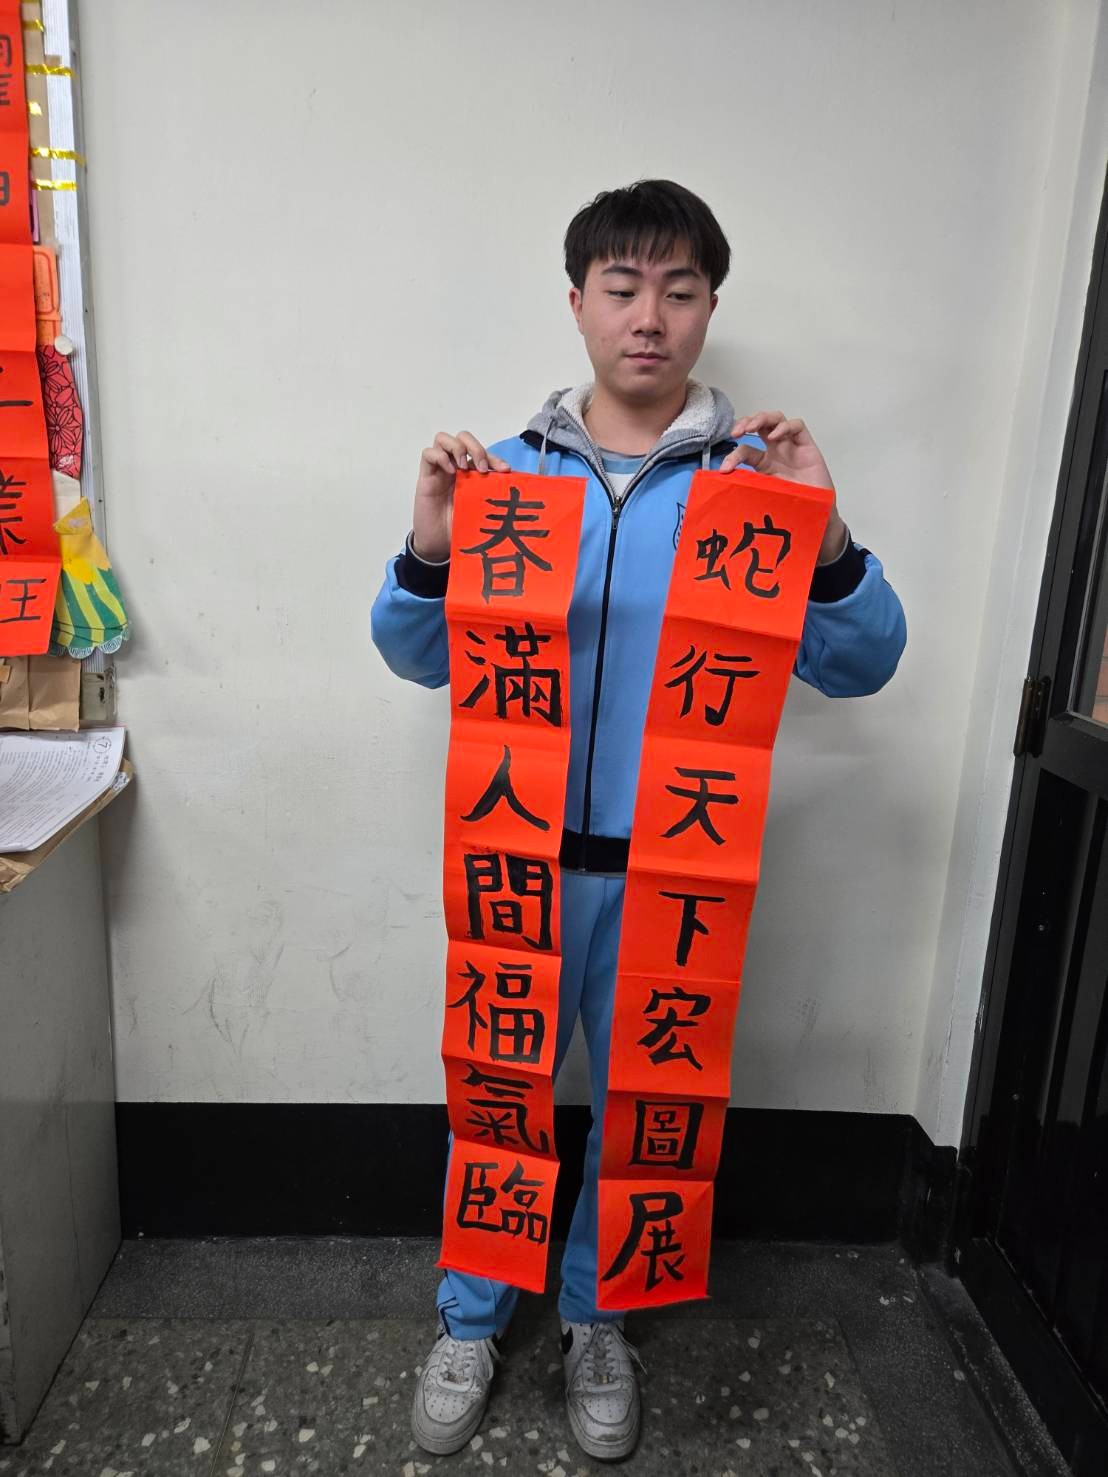 蛇行天下宏圖展
春滿人間福氣臨
業
旺